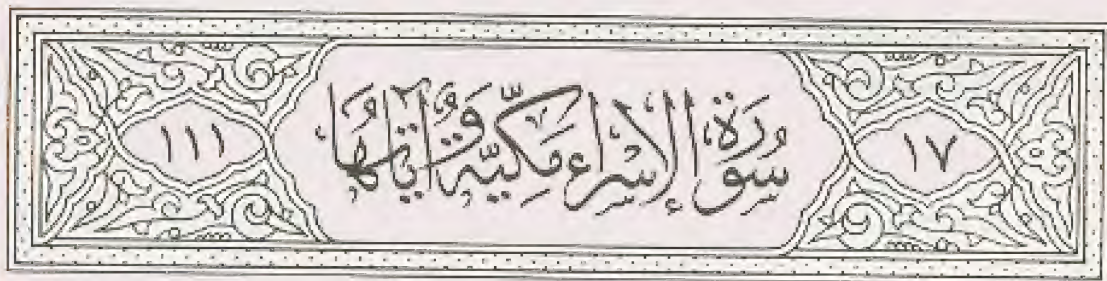 ١٧
سُورَةُ الْإِسْرَاءِ مَكِّيَّةٌ وَآيَاتُهَا
١١١